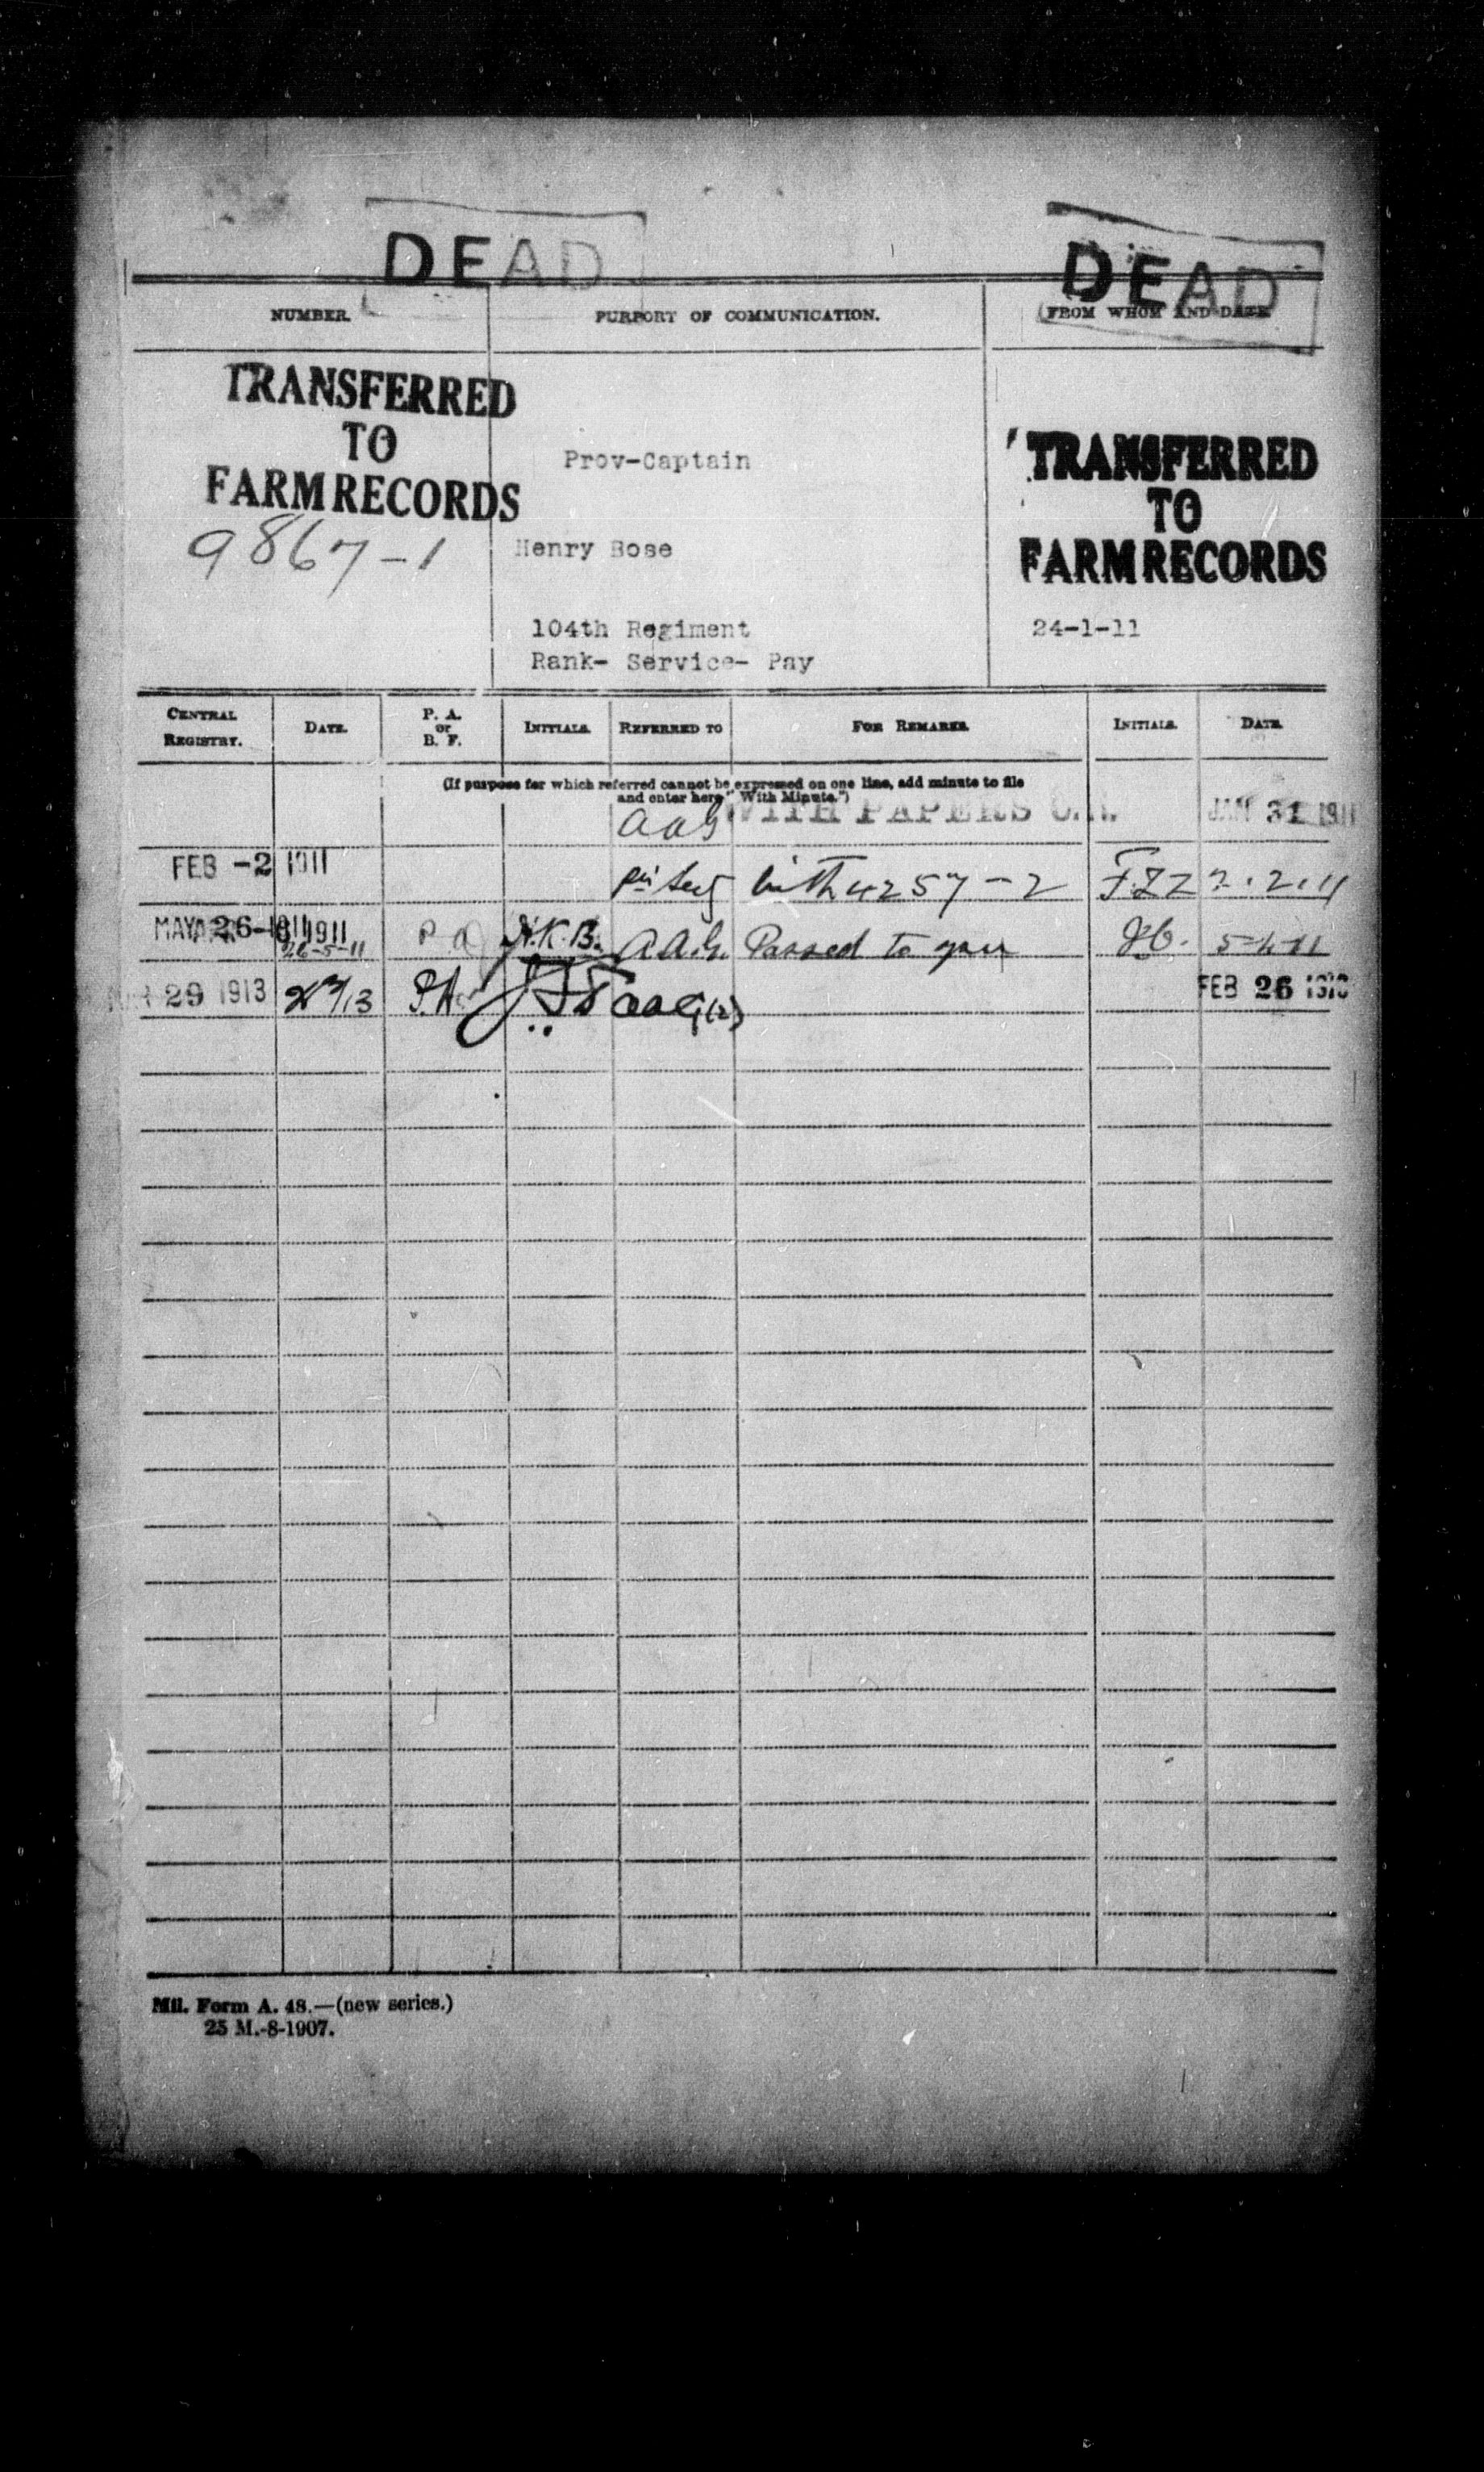 DEAD
DEAD
NUMBER.
PURPORT OF COMMUNICATION.
FROM WHOM AND DATE
TRANSFERRED
TO
FARM RECORDS
9867-1
Prov-Captain
Henry Rose
104th Regiment
Rank- Service- Pay
TRANSFERRED
TO
FARM RECORDS
24-1-11
CENTRAL REGISTRY.
DATE.
P. A. or B. F.
INITIALS.
REFERRED TO
FOR REMARKS.
INITIALS.
DATE.
(If purpose for which referred cannot be expressed on one line, add minute to file
and enter here "With Minute.")
AAG WITH PAPERS JAN 31 1911
FEB -2 1911 with 4257-2 2.2.11
MAY 26 1911 26-5-11 P A H.K.B. A.A.G. Passed to you 5-4-11
29 1913 P.A. AAG (2) FEB 26
Mil. Form A. 48.—(new series.)
25 M.-8-1907.